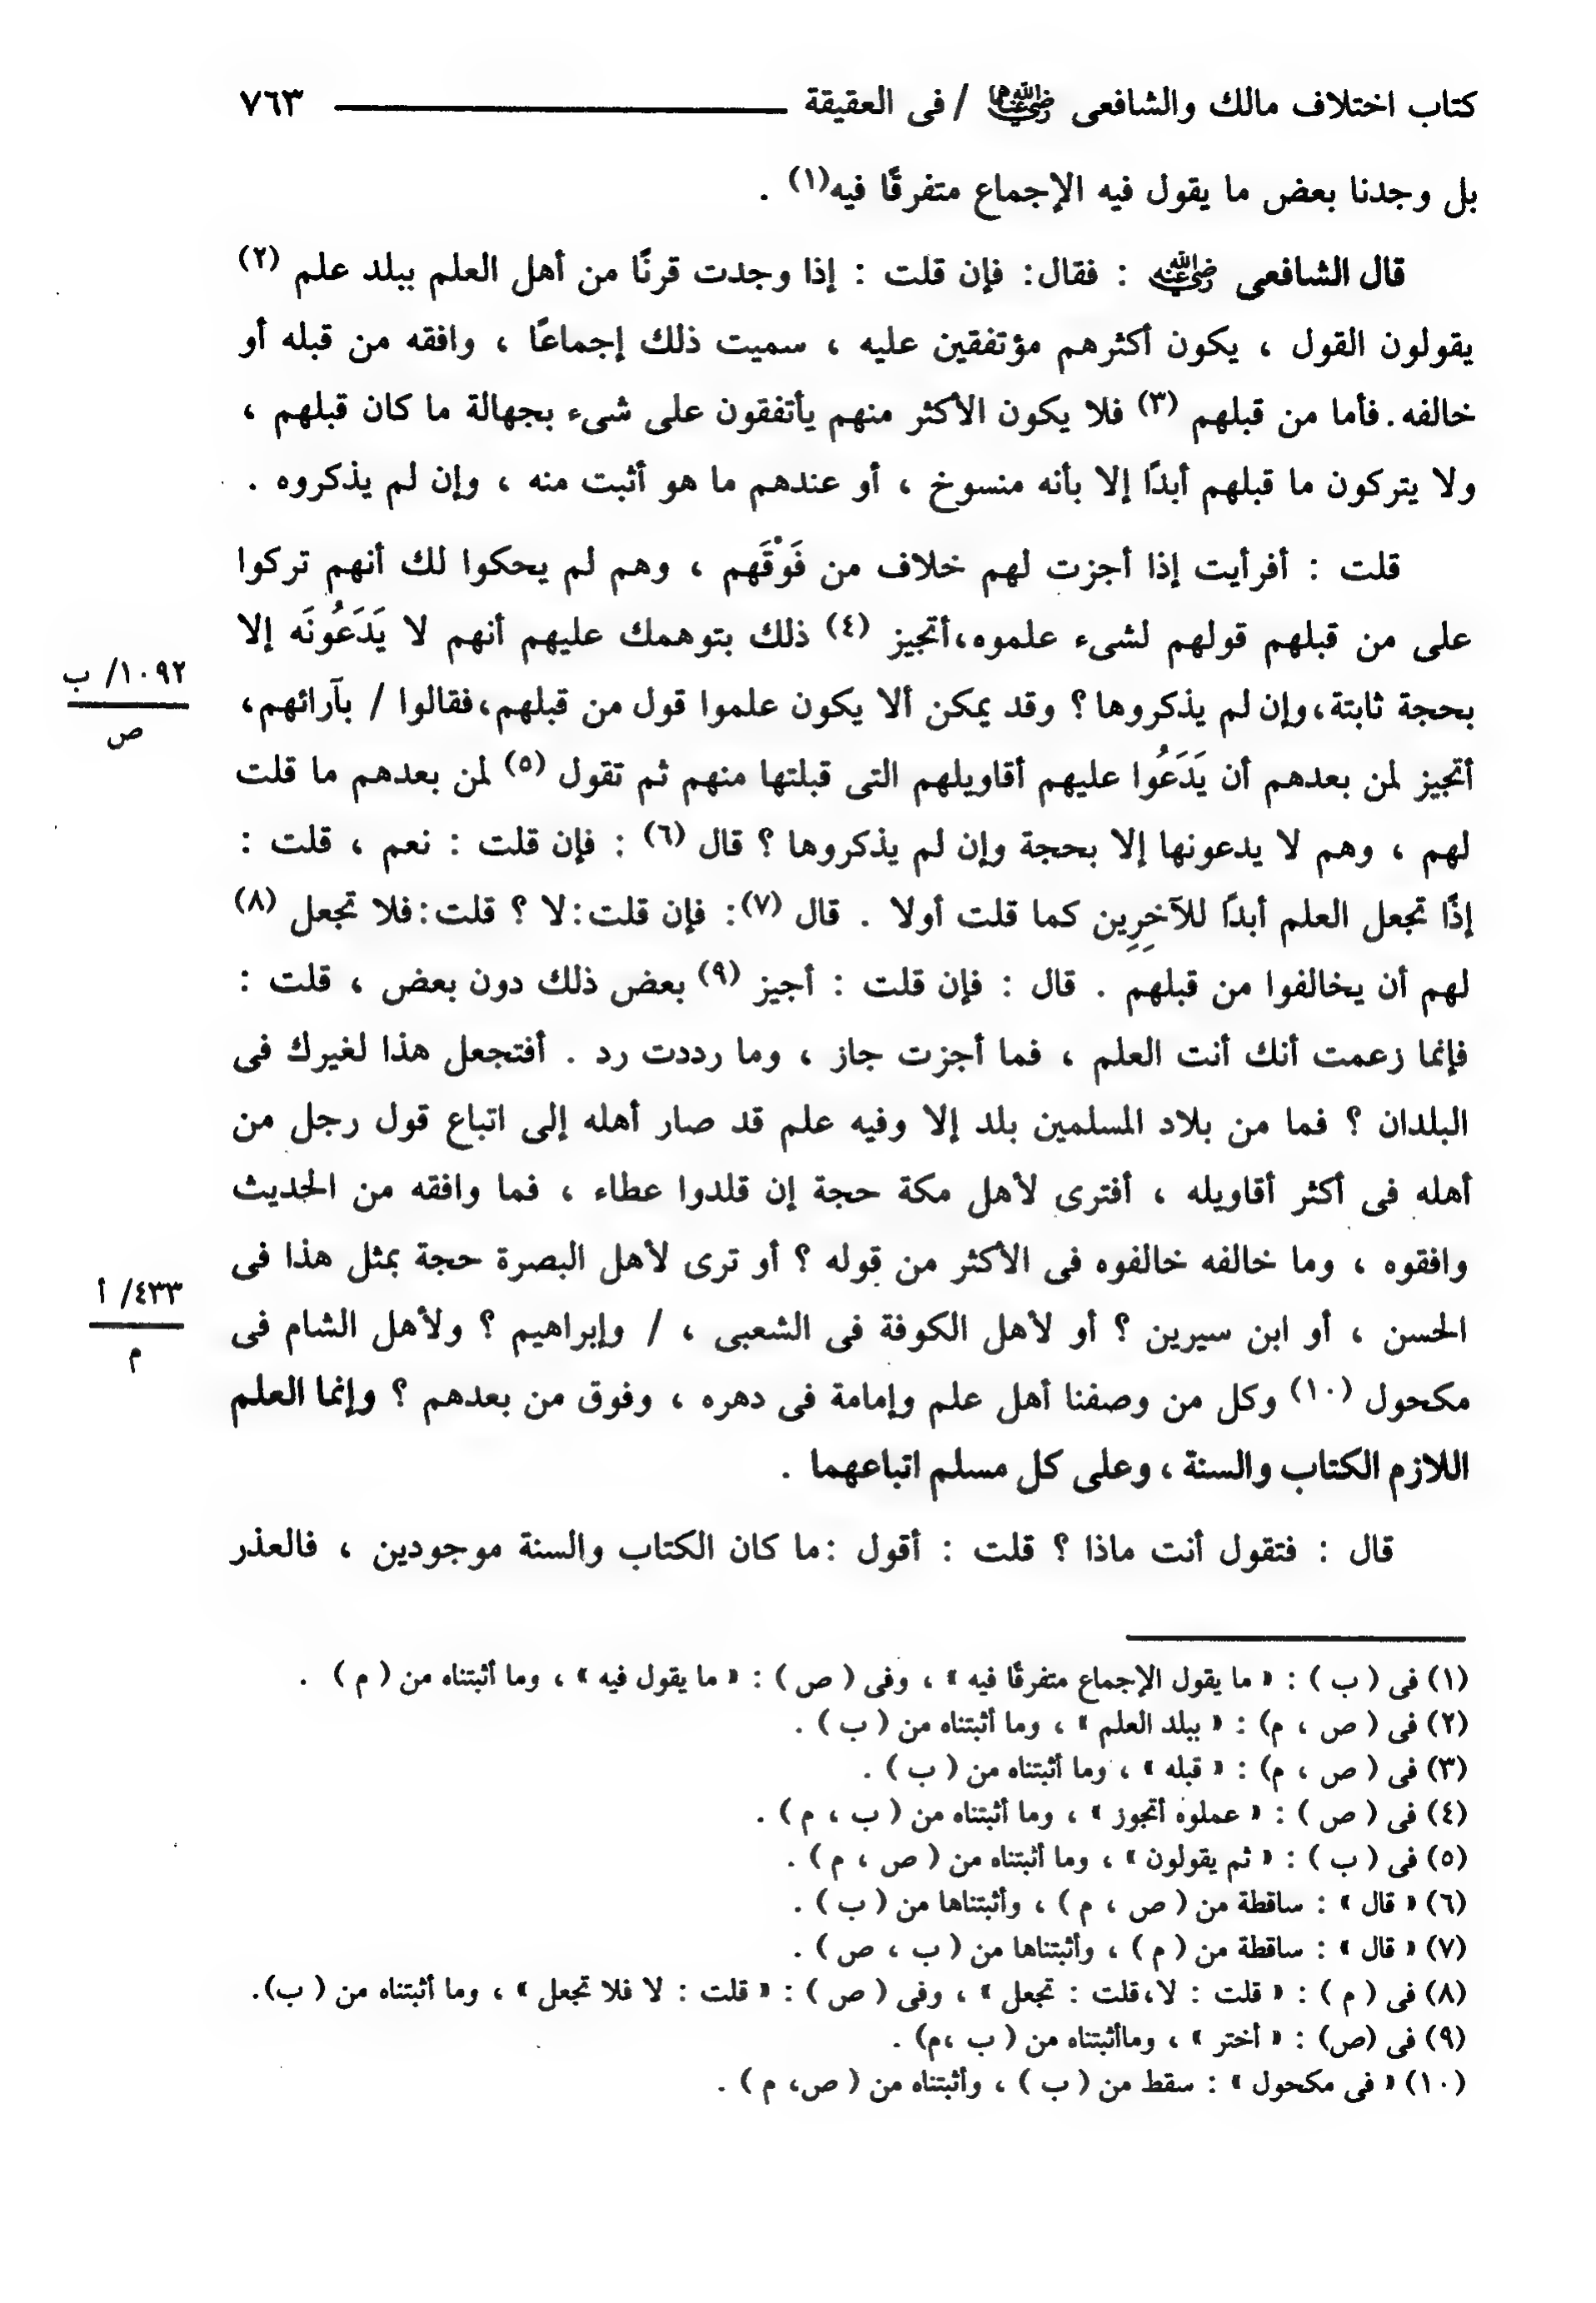 كتاب اختلاف مالك والشافعى رضي الله عنهما / فى العقيقة ٧٦٣
بل وجدنا بعض ما يقول فيه الإجماع متفرقًا فيه(١) .
قال الشافعى رضي الله عنه : فقال: فإن قلت : إذا وجدت قرنًا من أهل العلم ببلد علم (٢)
يقولون القول ، يكون أكثرهم مؤتفقين عليه ، سميت ذلك إجماعًا ، وافقه من قبله أو
خالفه. فأما من قبلهم (٣) فلا يكون الأكثر منهم يأتفقون على شىء بجهالة ما كان قبلهم ،
ولا يتركون ما قبلهم أبدًا إلا بأنه منسوخ ، أو عندهم ما هو أثبت منه ، وإن لم يذكروه .
قلت : أفرأيت إذا أجزت لهم خلاف من فَوْقَهم ، وهم لم يحكوا لك أنهم تركوا
على من قبلهم قولهم لشىء علموه،أتجيز (٤) ذلك بتوهمك عليهم أنهم لا يَدَعُونَه إلا
١٠٩٢/ ب
ص
بحجة ثابتة،وإن لم يذكروها ؟ وقد يمكن ألا يكون علموا قول من قبلهم،فقالوا / بآرائهم،
أتجيز لمن بعدهم أن يَدَعُوا عليهم أقاويلهم التى قبلتها منهم ثم تقول (٥) لمن بعدهم ما قلت
لهم ، وهم لا يدعونها إلا بحجة وإن لم يذكروها ؟ قال (٦) : فإن قلت : نعم ، قلت :
إذًا تجعل العلم أبدًا للآخِرِين كما قلت أولا . قال (٧): فإن قلت:لا ؟ قلت:فلا تجعل (٨)
لهم أن يخالفوا من قبلهم . قال : فإن قلت : أجيز (٩) بعض ذلك دون بعض ، قلت :
فإنما زعمت أنك أنت العلم ، فما أجزت جاز ، وما رددت رد . أفتجعل هذا لغيرك فى
البلدان ؟ فما من بلاد المسلمين بلد إلا وفيه علم قد صار أهله إلى اتباع قول رجل من
أهله فى أكثر أقاويله ، أفترى لأهل مكة حجة إن قلدوا عطاء ، فما وافقه من الحديث
وافقوه ، وما خالفه خالفوه فى الأكثر من قوله ؟ أو ترى لأهل البصرة حجة بمثل هذا فى
٤٣٣/ أ
م
الحسن ، أو ابن سيرين ؟ أو لأهل الكوفة فى الشعبى ، / وإبراهيم ؟ ولأهل الشام فى
مكحول (١٠) وكل من وصفنا أهل علم وإمامة فى دهره ، وفوق من بعدهم ؟ وإنما العلم
اللازم الكتاب والسنة ، وعلى كل مسلم اتباعهما .
قال : فتقول أنت ماذا ؟ قلت : أقول :ما كان الكتاب والسنة موجودين ، فالعذر
(١) فى ( ب ) : « ما يقول الإجماع متفرقًا فيه » ، وفى ( ص ) : « ما يقول فيه » ، وما أثبتناه من ( م ) .
(٢) فى ( ص ، م) : « ببلد العلم » ، وما أثبتناه من ( ب ) .
(٣) فى ( ص ، م) : « قبله » ، وما أثبتناه من ( ب ) .
(٤) فى ( ص ) : « عملوه أتجوز » ، وما أثبتناه من ( ب ، م ) .
(٥) فى ( ب ) : « ثم يقولون » ، وما أثبتناه من ( ص ، م ) .
(٦) « قال » : ساقطة من ( ص ، م ) ، وأثبتناها من ( ب ) .
(٧) « قال » : ساقطة من ( م ) ، وأثبتناها من ( ب ، ص ) .
(٨) فى ( م ) : « قلت : لا،قلت : تجعل » ، وفى ( ص ) : « قلت : لا فلا تجعل » ، وما أثبتناه من ( ب).
(٩) فى (ص) : « أختر » ، وماأثبتناه من ( ب ،م) .
(١٠) « فى مكحول » : سقط من ( ب ) ، وأثبتناه من ( ص، م ) .